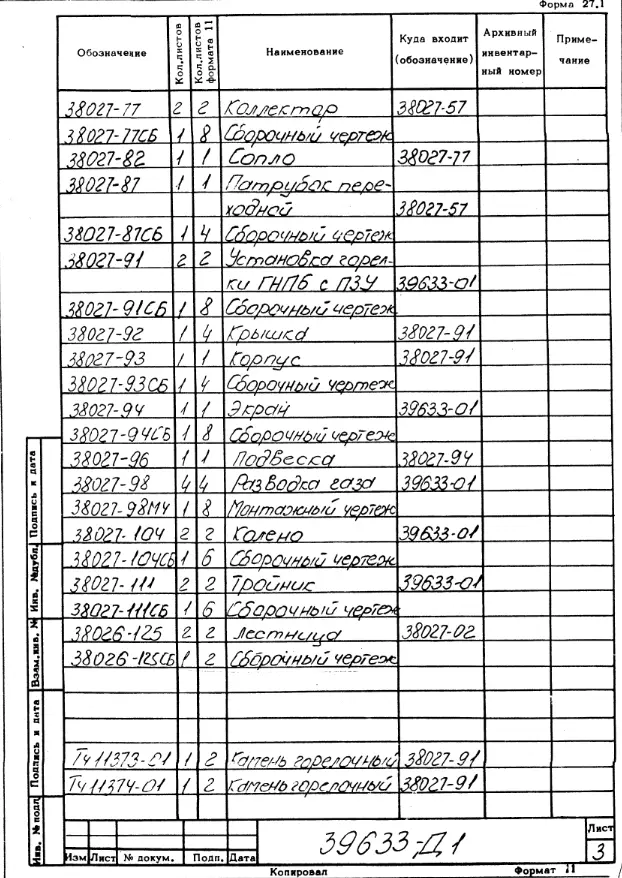 Форма 27.1
Обозначение Кол.листов Кол.листов формата 11 Наименование Куда входит (обозначение) Архивный инвентарный номер Примечание
38027-77 2 2 Коллектор 38027-57
38027-77СБ 1 8 Сборочный чертеж
38027-82 1 1 Сопло 38027-77
38027-87 1 1 Патрубок пере-
ходной 38027-57
38027-87СБ 1 4 Сборочный чертеж
38027-91 2 2 Установка горел-
ки ГНПБ с ПЗУ 39633-01
38027-91СБ 1 8 Сборочный чертеж
38027-92 1 4 Крышка 38027-91
38027-93 1 1 Корпус 38027-91
38027-93СБ 1 4 Сборочный чертеж
38027-94 1 1 Экран 39633-01
38027-94СБ 1 8 Сборочный чертеж
38027-96 1 1 Подвеска 38027-94
38027-98 4 4 Разводка газа 39633-01
38027-98МЧ 1 8 Монтажный чертеж
38027-104 2 2 Колено 39633-01
38027-104СБ 1 6 Сборочный чертеж
38027-111 2 2 Тройник 39633-01
38027-111СБ 1 6 Сборочный чертеж
38026-125 2 2 Лестница 38027-02
38026-125СБ 1 2 Сборочный чертеж
Тч11373-01 1 2 Камень горелочный 38027-91
Тч11374-01 1 2 Камень горелочный 38027-91
Инв. № подл. Подпись и дата Взам.инв. № Инв. №дубл. Подпись и дата
Изм Лист № докум. Подп. Дата
39633-Д1
Лист
3
Копировал Формат 11